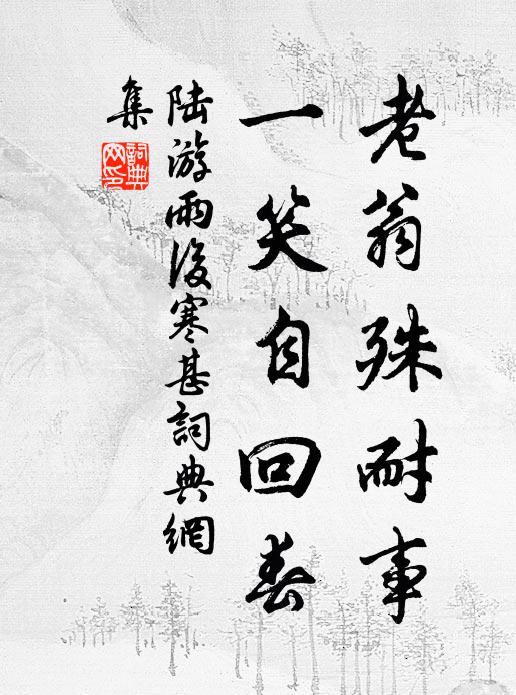 老翁殊耐事
一笑自回春
陆游雨後寒甚詞典網
集
詞典网印